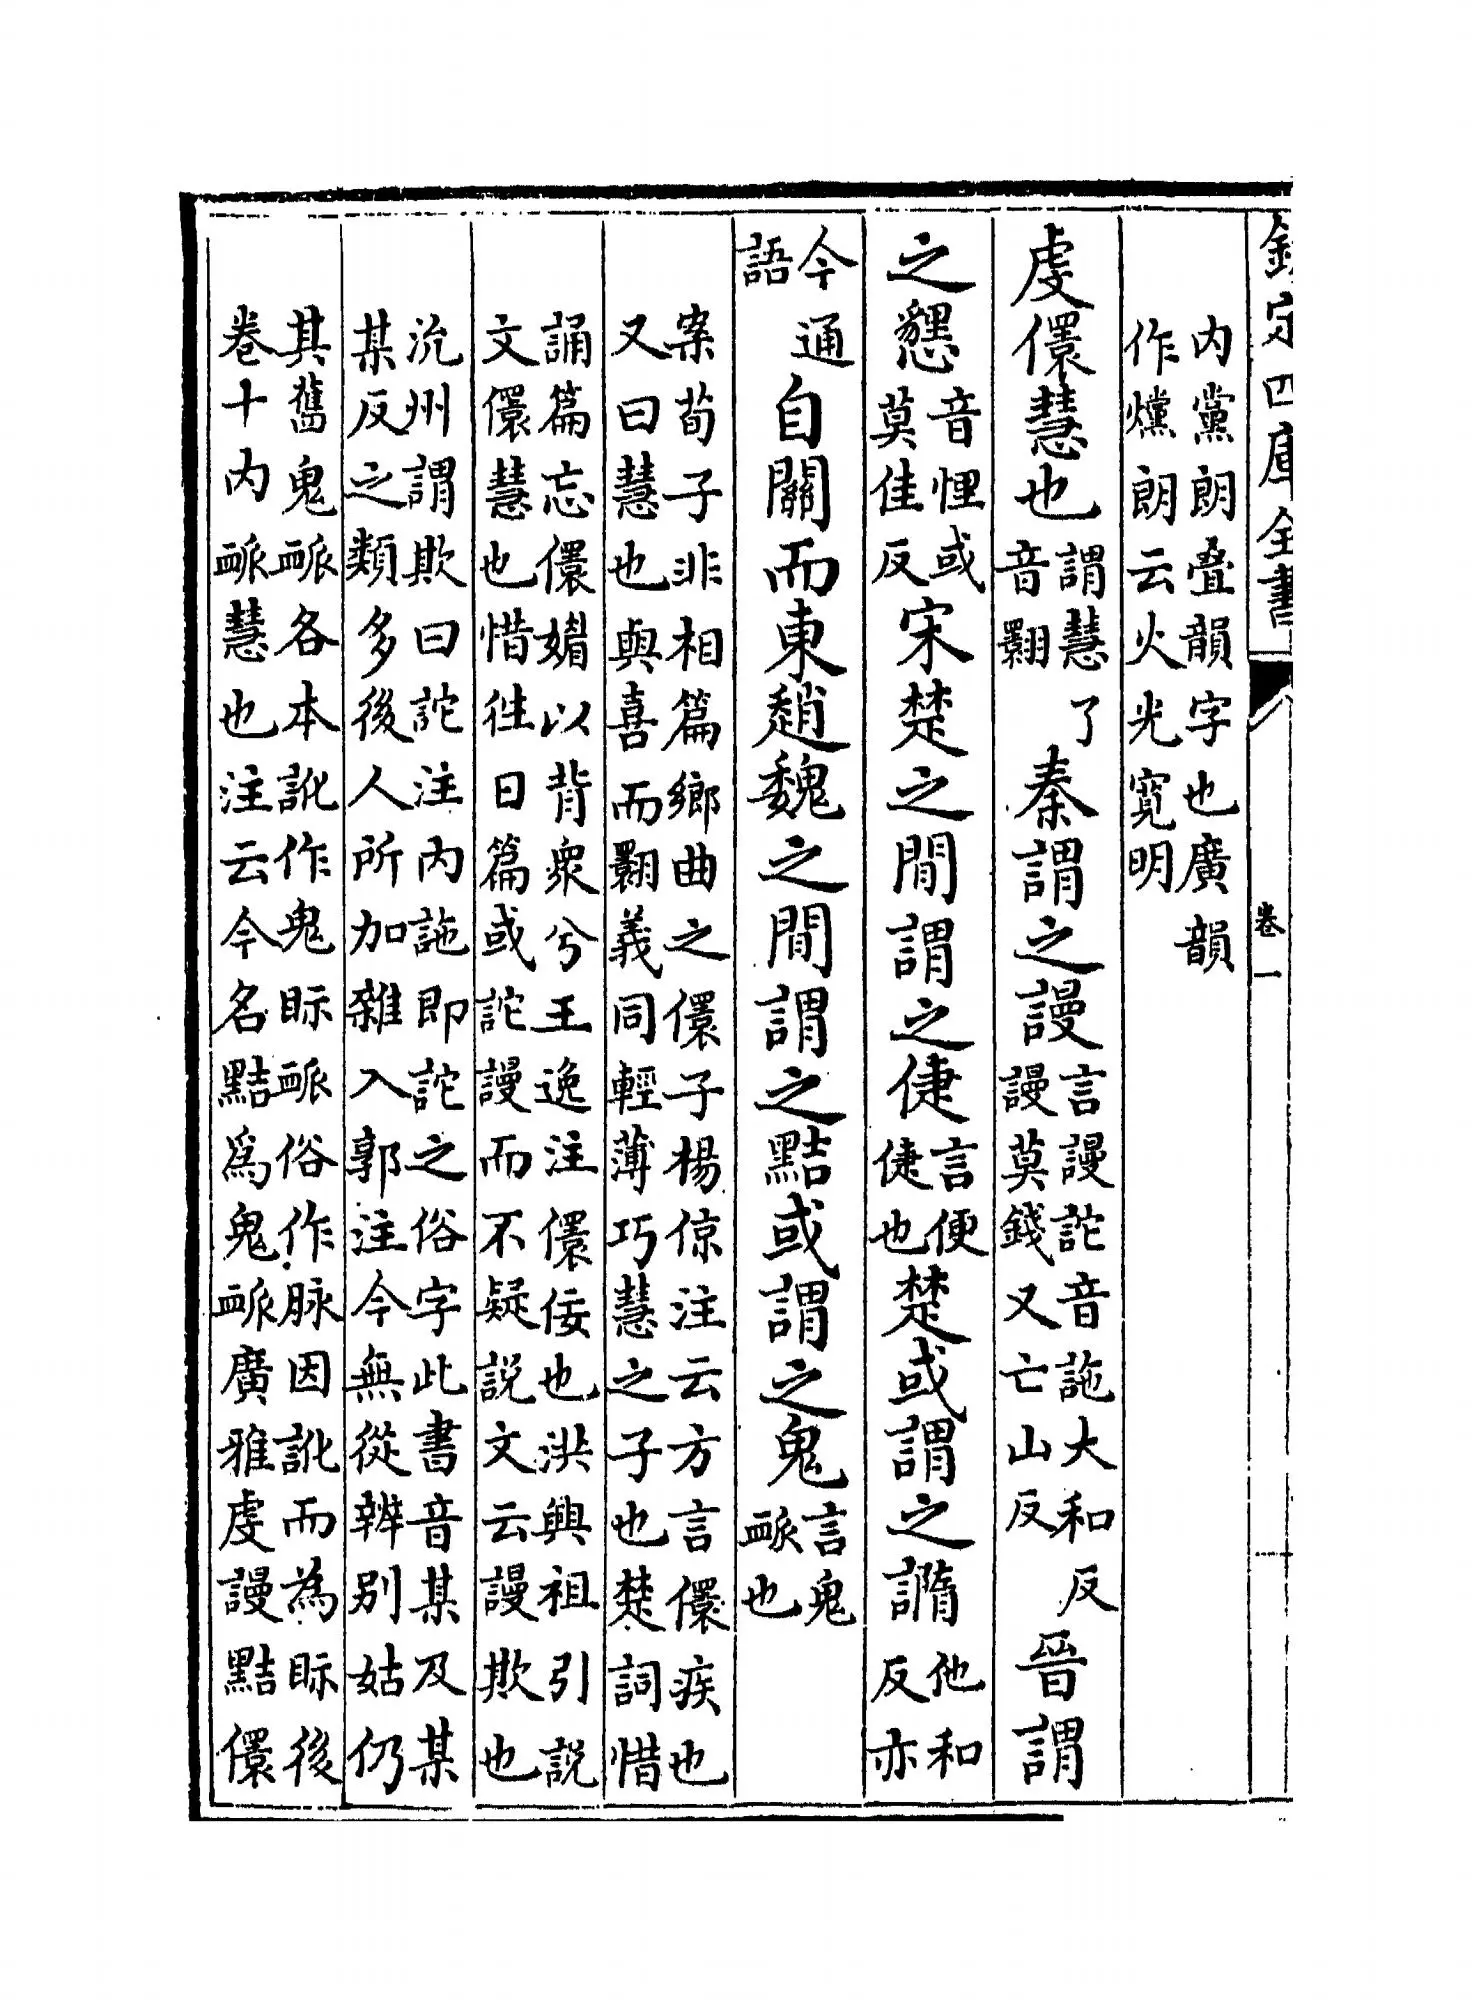 欽定四庫全書
卷一
内黨朗叠韻字也廣韻
作爣朗云火光寛明
虔儇慧也謂慧了
音翾秦謂之謾言謾詑音訑大和反
謾莫錢又亡山反晉謂
之㦟音悝或
莫佳反宋楚之間謂之倢言便
倢也楚或謂之䜏他和
反亦
今通
語自關而東趙魏之間謂之黠或謂之鬼言鬼
衇也
案荀子非相篇鄉曲之儇子楊倞注云方言儇疾也
又曰慧也與喜而翾義同輕薄巧慧之子也楚詞惜
誦篇忘儇媚以背衆兮王逸注儇佞也洪興祖引説
文儇慧也惜往日篇或詑謾而不疑説文云謾欺也
沇州謂欺曰詑注内訑即詑之俗字此書音某及某
某反之類多後人所加雜入郭注今無從辨别姑仍
其舊鬼衇各本訛作鬼眎衇俗作脉因訛而為眎後
卷十内衇慧也注云今名黠爲鬼衇廣雅虔謾黠儇